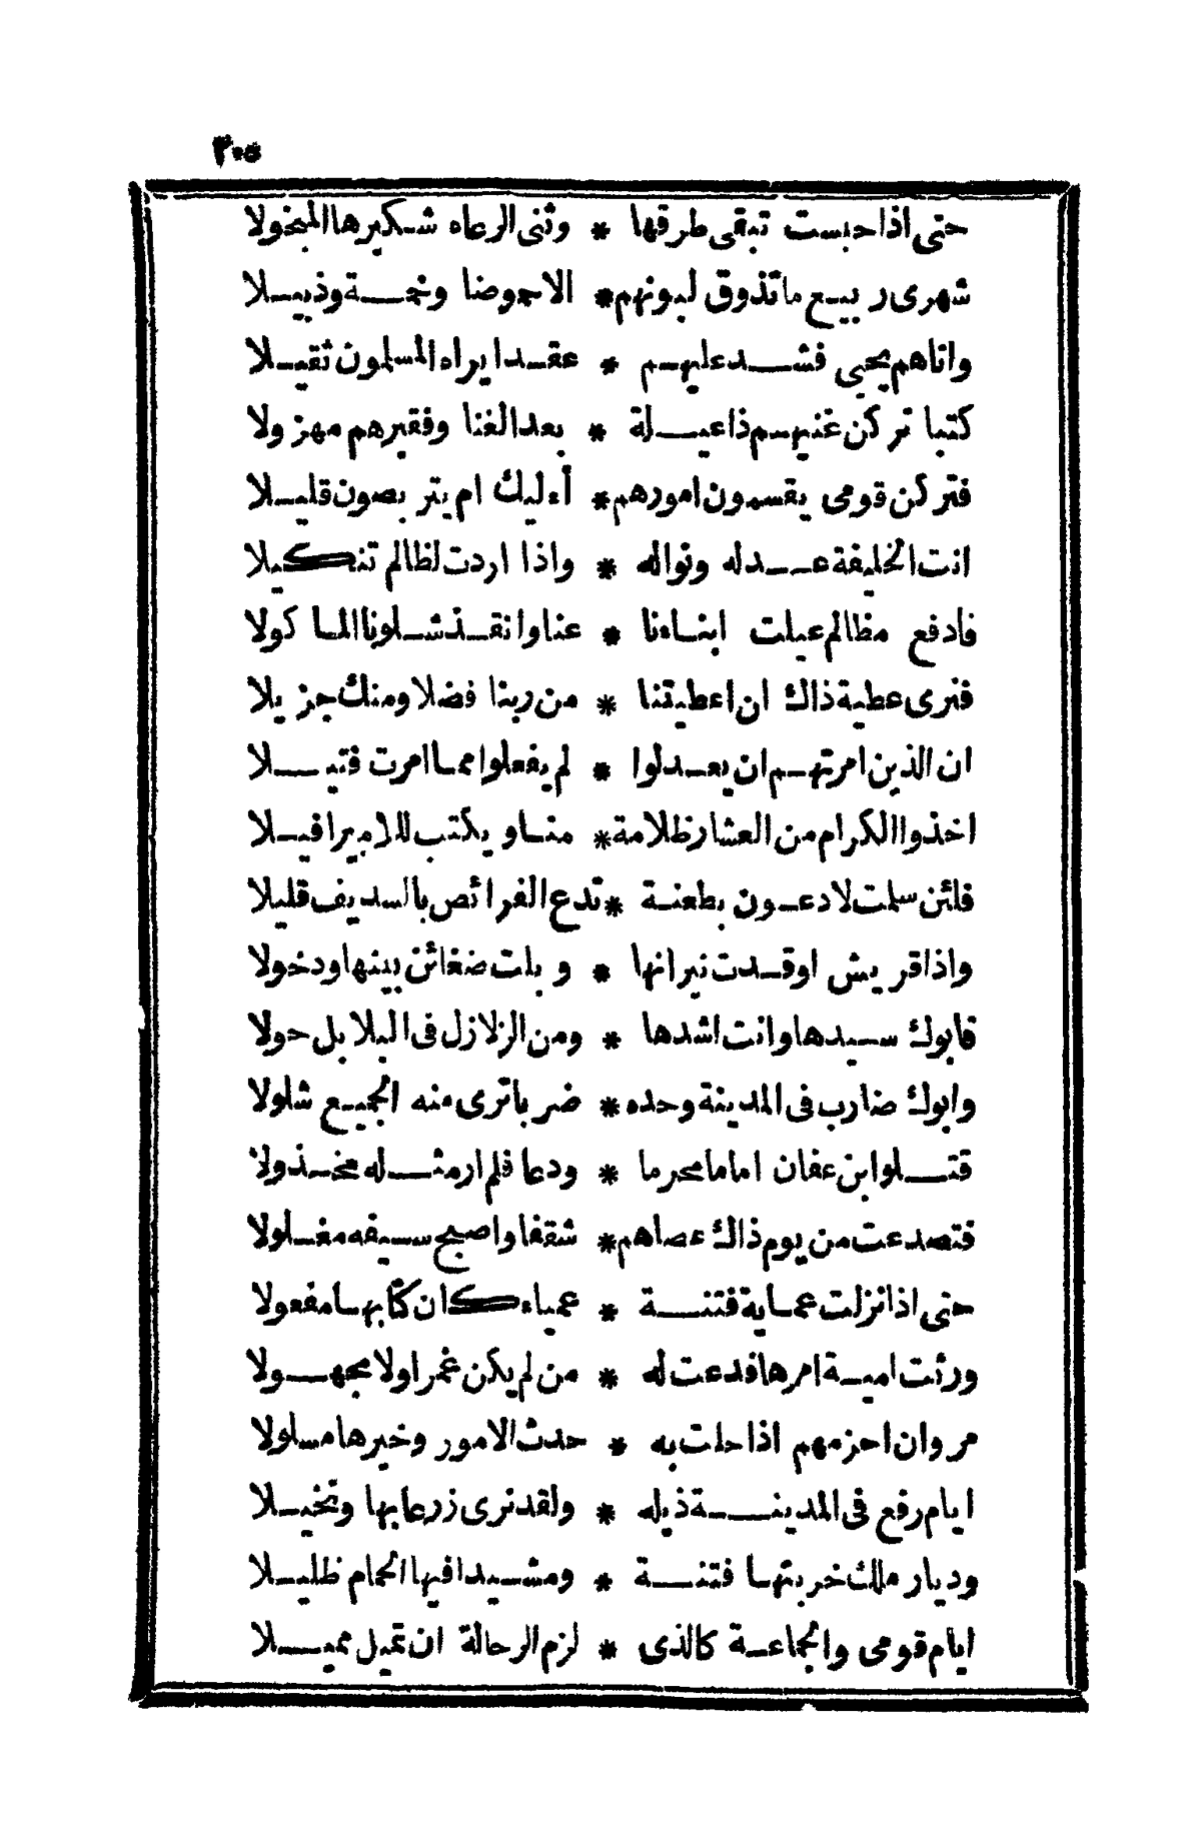 ٣٠٥
حتى اذا حبست تبقى طرقها * وثنى الرعاه شكيرها المنخولا
شهرى ربيع ما تذوق لبونهم * الا حموضا وخمة وذبيلا
واتاهم يحيى فشد عليهم * عقدا يراه المسلمون ثقيلا
كتبا تركن غنيهم ذا عيلة * بعد الغنا وفقيرهم مهزولا
فتركن قومى يقسمون امورهم * أءليك ام يتربصون قليلا
انت الخليفة عدله ونواله * واذا اردت لظالم تنكيلا
فادفع مظالم عيلت ابناءنا * عنا وانقذ شلونا الماكولا
فنرى عطية ذاك ان اعطيتنا * من ربنا فضلا ومنك جزيلا
ان الذين امرتهم ان يعدلوا * لم يفعلوا مما امرت فتيلا
اخذوا الكرام من العشار ظلامة * منا ويكتب للامير افيلا
فلئن سلمت لادعون بطعنة * تدع الفرائص بالسديف قليلا
واذا قريش اوقدت نيرانها * وبلت ضغائن بينها ودخولا
فابوك سيدها وانت اشدها * ومن الزلازل فى البلابل حولا
وابوك ضارب فى المدينة وحده * ضربا ترى منه الجميع شلولا
قتلوا ابن عفان اماما محرما * ودعا فلم ار مثله مخذولا
فتصدعت من يوم ذاك عصاهم * شققا واصبح سيفه مغلولا
حتى اذا نزلت عماية فتنة * عمياء كان كتابها مفعولا
ورئت امية امرها فدعت له * من لم يكن غمرا ولا مجهولا
مروان احزمهم اذا حلت به * حدث الامور وخيرها مسلولا
ايام رفع فى المدينة ذيله * ولقد نرى زرعا بها ونخيلا
وديار ملك خربتها فتنة * ومشيدا فيها الحمام ظليلا
ايام قومى والجماعة كالذى * لزم الرحالة ان تميل مميلا